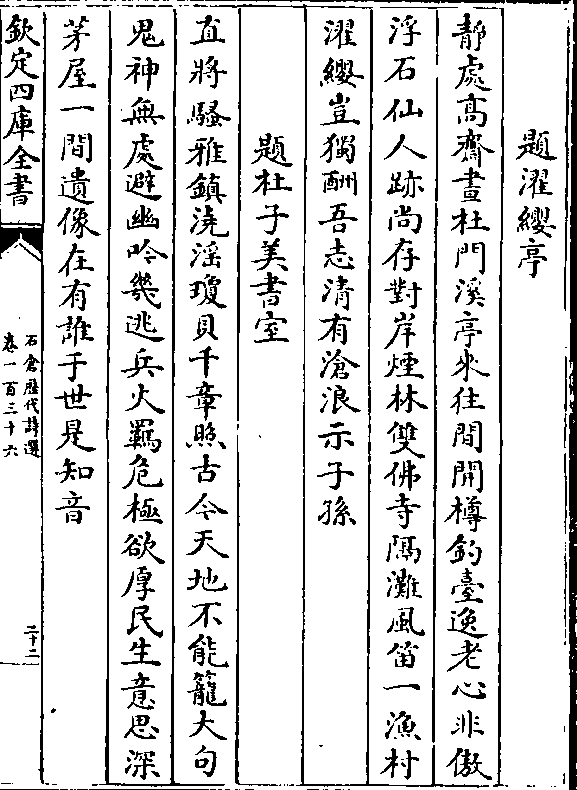 題濯纓亭
靜處高齋晝杜門溪亭來往間開樽釣臺逸老心非傲
浮石仙人跡尚存對岸煙林雙佛寺隔灘風笛一漁村
濯纓豈獨酬吾志清有滄浪示子孫
題杜子美書室
直將騷雅鎮澆淫瓊貝千章照古今天地不能籠大句
鬼神無處避幽吟幾逃兵火羈危極欲厚民生意思深
茅屋一間遺像在有誰于世是知音
欽定四庫全書
石倉歷代詩選
卷一百三十六
二十二